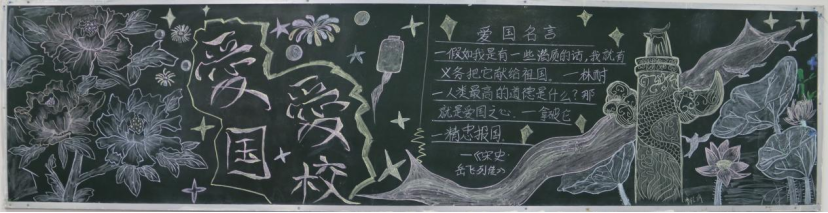 爱国
爱校
爱国名言
一假如我是有一些潜质的话,我就有
义务把它献给祖国。—林耐
一人类最高的道德是什么?那
就是爱国之心。—拿破仑
一精忠报国
—《宋史·
岳飞列传》